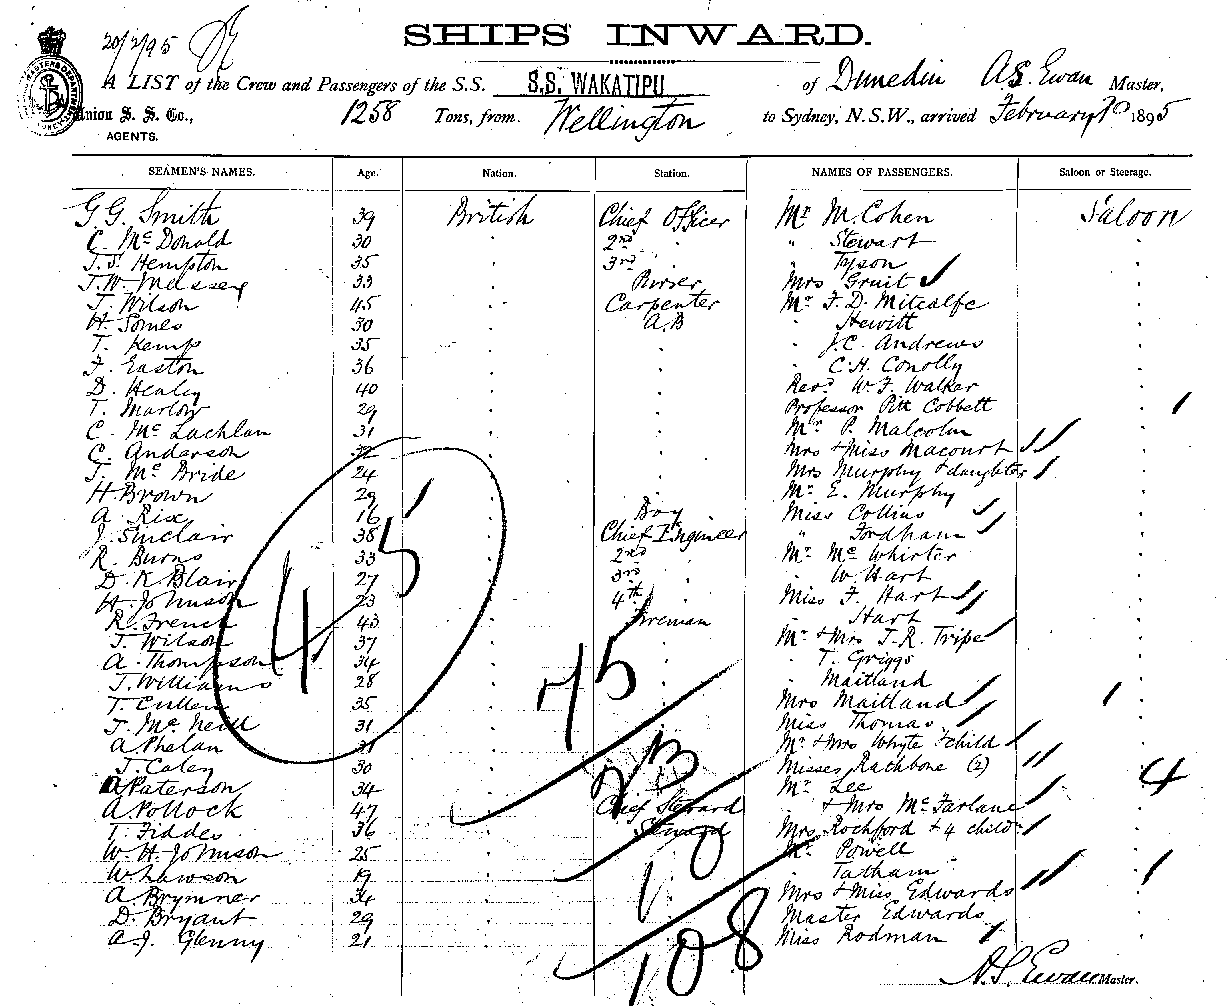 20/2/95
SHIPS INWARD.
A LIST of the Crew and Passengers of the S.S. S.S. WAKATIPU of Dunedin A.S. Ewan Master,
Union S. S. Co., AGENTS. 1258 Tons, from Wellington to Sydney, N.S.W., arrived February 1895
SEAMEN'S NAMES. Age. Nation. Station. NAMES OF PASSENGERS. Saloon or Steerage.
G. G. Smith 39 British Chief Officer Mr M. Cohen Saloon
C. McDonald 30 2nd " Stewart
J.S. Hempton 35 3rd Tyson
J.W. Massey 33 Purser Mrs Gruit
J. Wilson 45 Carpenter Mr F. D. Metcalfe
H. Somes 30 A.B Hewitt
T. Kemp 35 J.C. Andrews
F. Easton 36 C.H. Conolly
D. Healey 40 Revd W. F. Walker
T. Marlow 29 Professor Pitt Cobbett
C. McLachlan 31 Mr P. Malcolm
C. Anderson 32 Mrs & Miss Macourt
T. McBride 24 Mrs Murphy & daughter
H. Brown 29 Mr E. Murphy
A. Rix 16 Boy Miss Collins
J. Sinclair 38 Chief Engineer " Fordham
R. Burns 33 2nd Mr McWhirter
D. K Blair 27 3rd W. Hart
H. Johnson 23 4th Miss F. Hart
R. French 43 Fireman Hart
J. Wilson 37 Mr & Mrs J. R. Tripe
A. Thompson 34 T. Griggs
J. Williams 28 Maitland
T. Cullen 35 Mrs Maitland
J. McNeill 31 Miss Thomas
A Phelan 31 Mr & Mrs Whyte & child
J. Caley 30 Misses Rathbone (2)
A Paterson 34 Mr Lee
A Pollock 47 Chief Steward & Mrs McFarlane
T. Fiddes 36 Steward Mrs Rochford & 4 child
W. H. Johnson 25 Mr Powell
W Lawson 19 Tatham
A Brymner 34 Mrs & Miss Edwards
D. Bryant 29 Master Edwards
A. J. Glenny 21 Miss Rodman
45
75
23
10
108
4
A.S. Ewan Master.